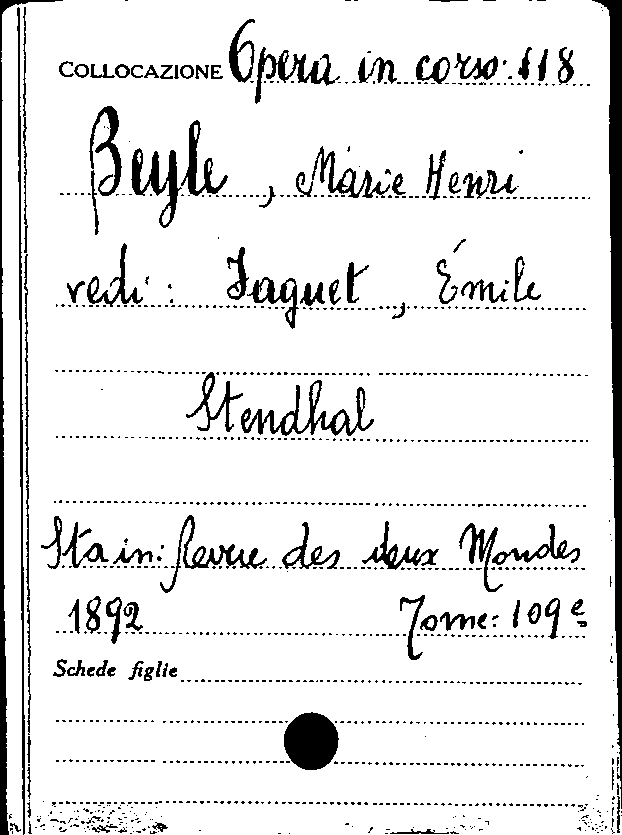 COLLOCAZIONE Opera in corso: 118
Beyle, Marie Henri
vedi: Faguet, Émile
Stendhal
Sta in: Revue des deux Mondes
1892 Tome: 109e
Schede figlie